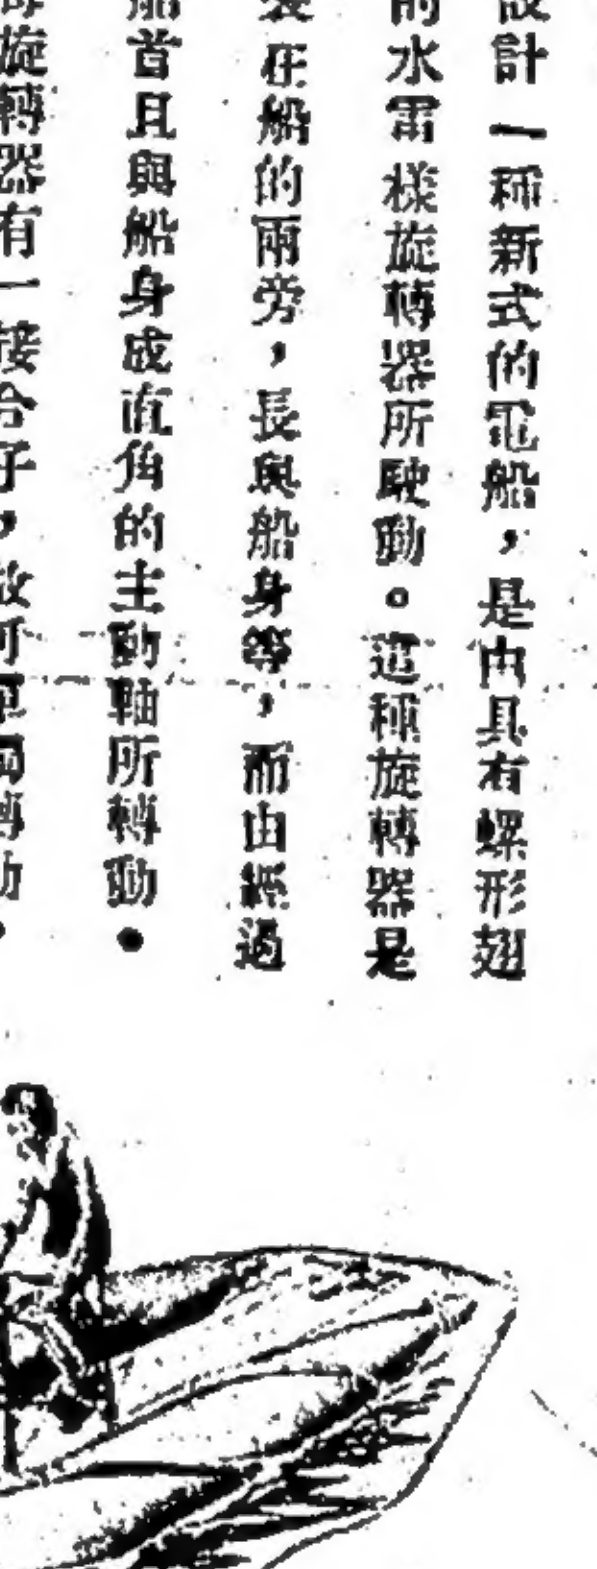 設計一種新式的電船，是由具有螺形翅
的水雷樣旋轉器所駛動。這種旋轉器是
裝在船的兩旁，長與船身等，而由經過
船首且與船身成直角的主動軸所轉動。
每旋轉器有一接合子，故可單獨轉動。